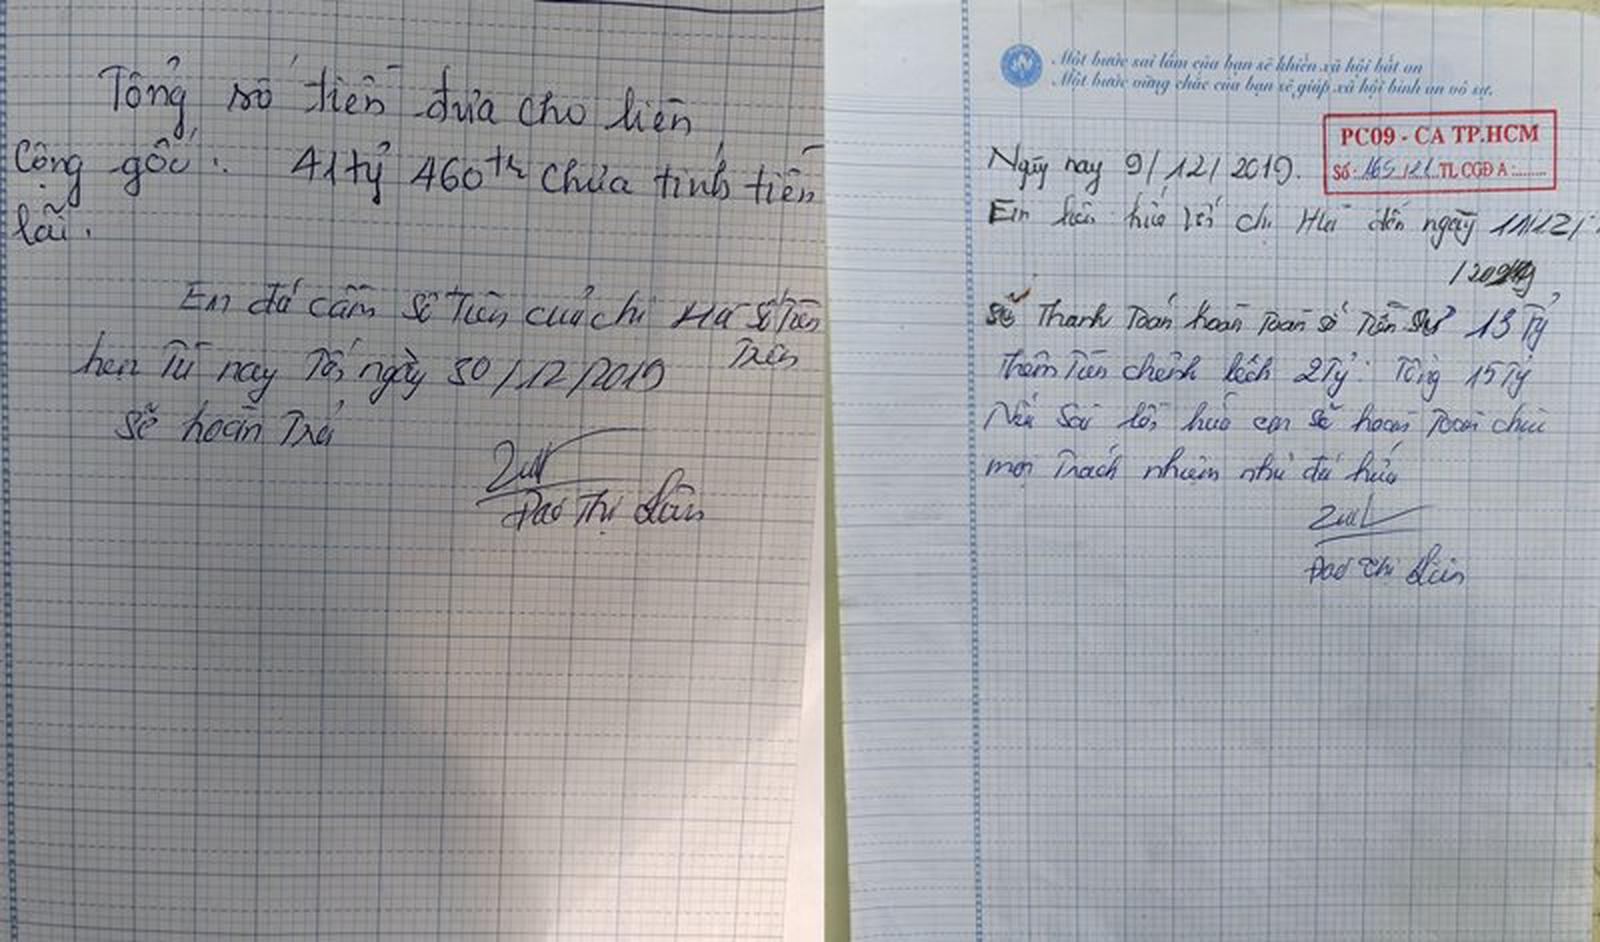 Tổng số tiền đưa cho liên
Cộng gốc: 41 tỷ 460th chưa tính tiền
lãi.
Em đã cầm số tiền của chị Hà số tiền
trên
hẹn từ nay tới ngày 30/12/2019
sẽ hoàn trả
Đào Thị Liên
Một bước sai lầm của bạn sẽ khiến xã hội bất an
Một bước vững chắc của bạn sẽ giúp xã hội bình an vô sự.
PC09 - CA TP.HCM
Số: 165/21 TL CGĐ A:
Ngày nay 9/12/2019.
Em liên hứa với chị đến ngày 11/12/
sẽ Thanh Toán hoàn Toàn số Tiền 13 Tỷ
Thêm Tiền chênh lệch 2 Tỷ: Tổng 15 Tỷ
Nếu Sai lời hứa em sẽ hoàn Toàn chịu
mọi Trách nhiệm như đã hứa
Đào Thị Liên